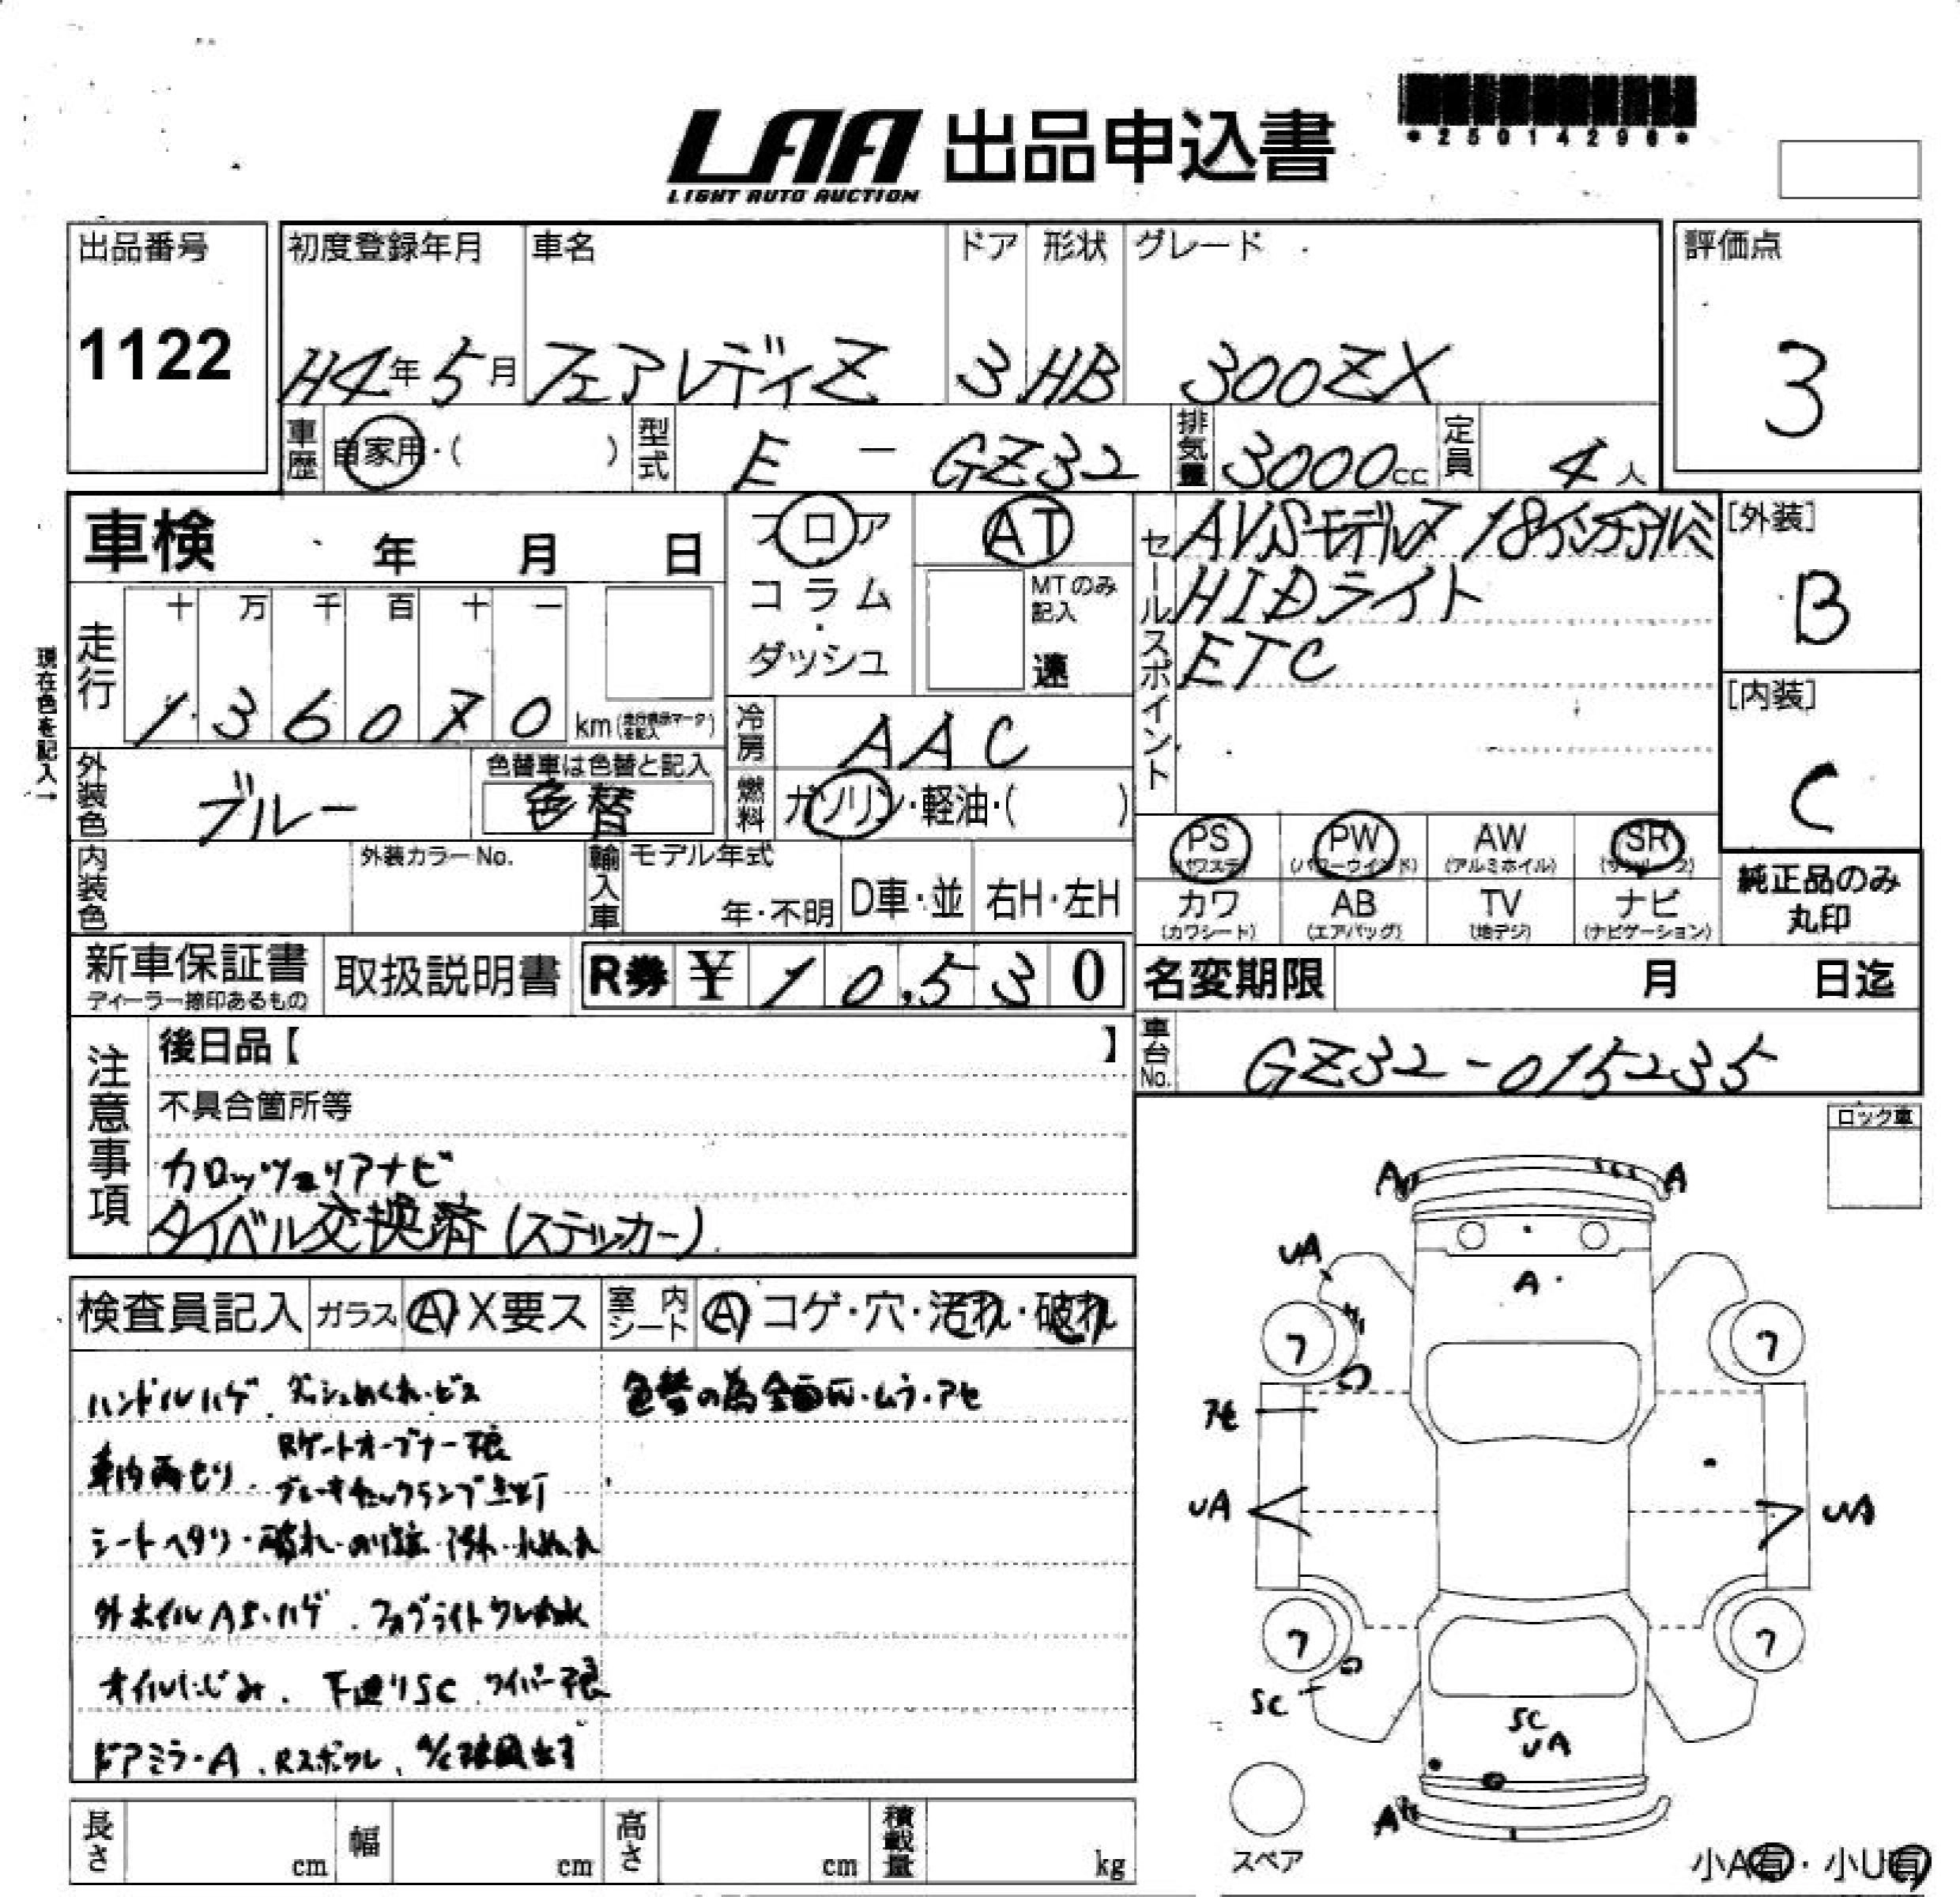 LAA 出品申込書
LIGHT AUTO AUCTION
*25014296*
出品番号 初度登録年月 車名 ドア 形状 グレード 評価点
1122 H4年5月 フェアレディZ 3 HB 300ZX 3
車歴 自家用・( ) 型式 E - GZ32 排気量 3000cc 定員 4人
車検 年 月 日 フロア AT
コラム・ MTのみ記入
ダッシュ 速
セールスポイント AVSモデル7 18インチアルミ
HIDライト
ETC
[外装] B
[内装] C
現在色を記入→
走行 十 万 千 百 十 一
1 3 6 0 7 0 km
冷房 AAC
外装色 ブルー 色替車は色替と記入 色替
燃料 ガソリン・軽油・( )
内装色 外装カラーNo. 輸入車 モデル年式 年・不明 D車・並 右H・左H
PS (パワステ) PW (パワーウインド) AW (アルミホイル) SR (サンルーフ)
カワ (カワシート) AB (エアバッグ) TV (地デジ) ナビ (ナビゲーション)
純正品のみ丸印
新車保証書 取扱説明書 R券 ¥ 10,530
ディーラー捺印あるもの
名変期限 月 日迄
車台No. GZ32-015235
注意事項 後日品【 】
不具合箇所等
カロッツェリアナビ
タイベル交換済(ステッカー)
ロック車
検査員記入 ガラス A X要ス 室内シート A コゲ・穴・汚れ・破れ
ハンドルハゲ、ダッシュめくれ・ビス 色替の為全面
車内雨もり、Rゲートオープナー不良
ブレーキチェックランプ点灯
シートヘタリ・破れ
外ホイルAS・ハゲ、フォグライトワレ
オイルにじみ、下廻りSC、ワイパー不良
ドアミラーA、Rスポワレ、
A A
UA
A
フ フ
アセ
UA UA
フ フ
SC
SC
UA
A
スペア
小A有・小U有
長さ cm 幅 cm 高さ cm 積載量 kg